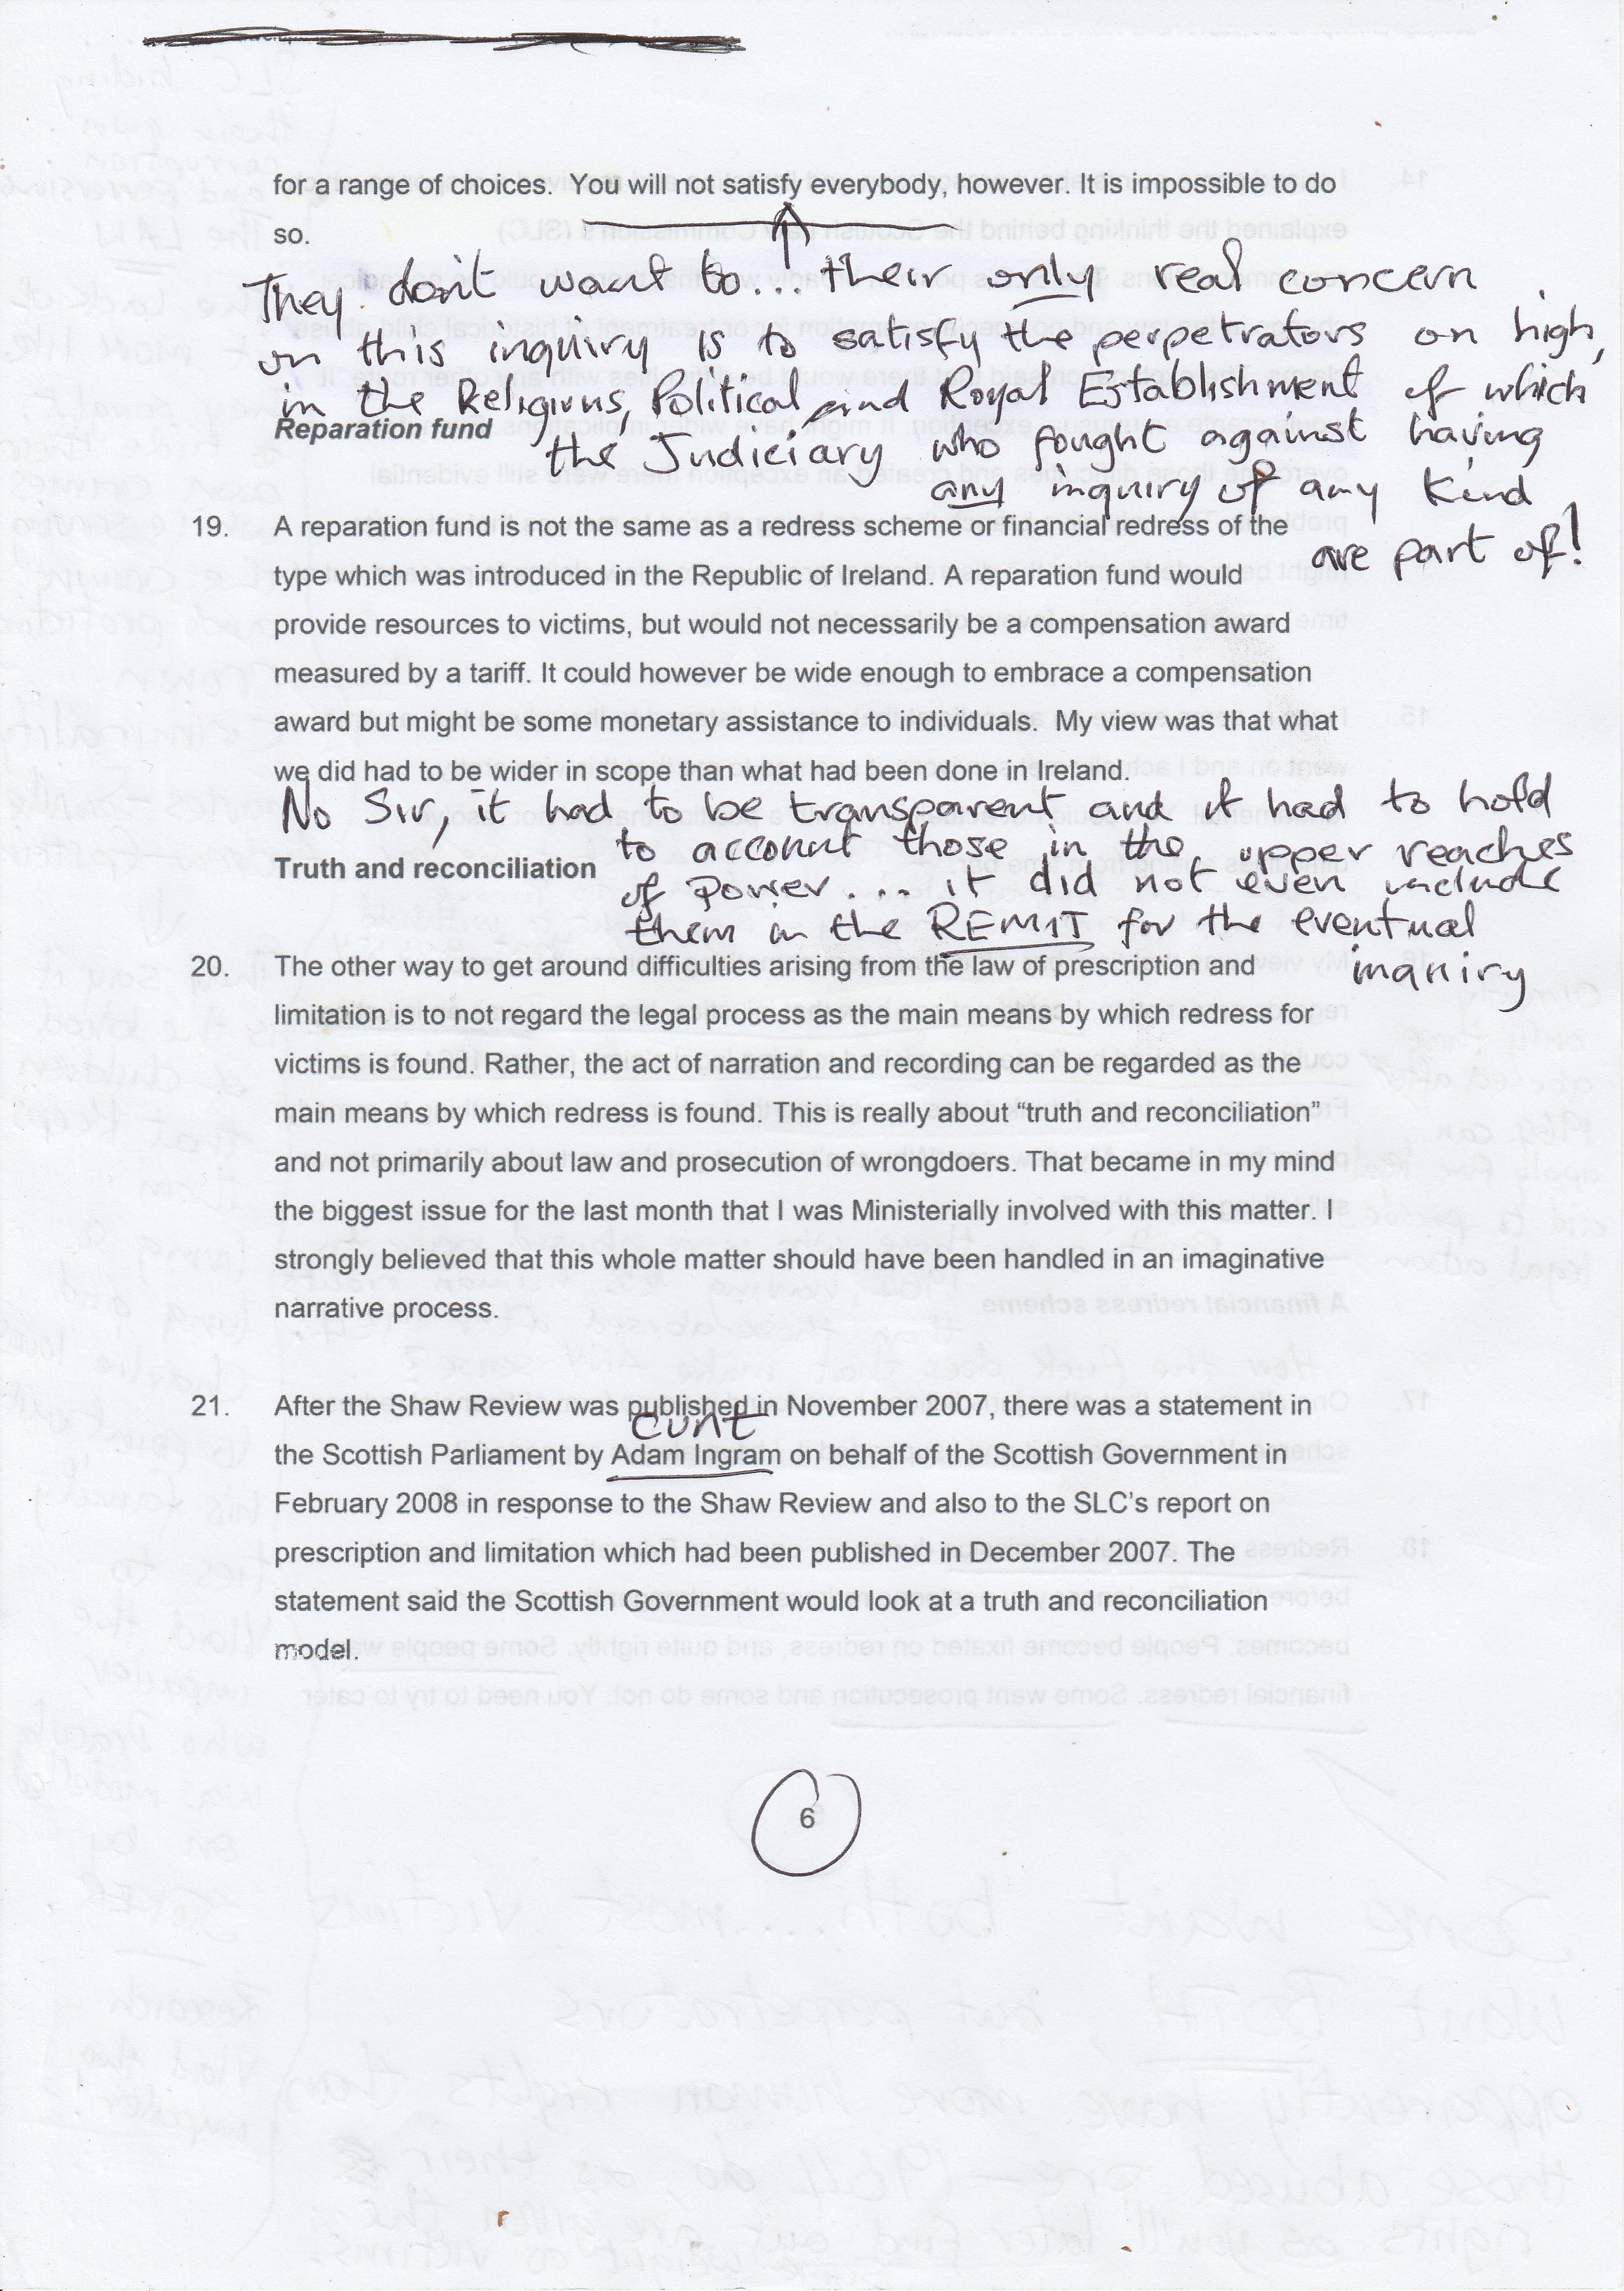 for a range of choices. You will not satisfy everybody, however. It is impossible to do
so.
They don't want to... their only real concern
in this inquiry is to satisfy the perpetrators on high,
in the Religious, Political and Royal Establishment of which
Reparation fund
the Judiciary who fought against having
any inquiry of any kind
are part of!
19. A reparation fund is not the same as a redress scheme or financial redress of the
type which was introduced in the Republic of Ireland. A reparation fund would
provide resources to victims, but would not necessarily be a compensation award
measured by a tariff. It could however be wide enough to embrace a compensation
award but might be some monetary assistance to individuals. My view was that what
we did had to be wider in scope than what had been done in Ireland.
No Sir, it had to be transparent and it had to hold
to account those in the upper reaches
Truth and reconciliation
of power... it did not even include
them in the REMIT for the eventual
inquiry
20. The other way to get around difficulties arising from the law of prescription and
limitation is to not regard the legal process as the main means by which redress for
victims is found. Rather, the act of narration and recording can be regarded as the
main means by which redress is found. This is really about “truth and reconciliation”
and not primarily about law and prosecution of wrongdoers. That became in my mind
the biggest issue for the last month that I was Ministerially involved with this matter. I
strongly believed that this whole matter should have been handled in an imaginative
narrative process.
21. After the Shaw Review was published in November 2007, there was a statement in
cunt
the Scottish Parliament by Adam Ingram on behalf of the Scottish Government in
February 2008 in response to the Shaw Review and also to the SLC's report on
prescription and limitation which had been published in December 2007. The
statement said the Scottish Government would look at a truth and reconciliation
model.
6